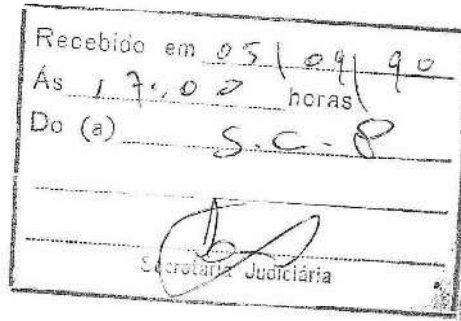 Recebido em 05/09/90
Ás 17:00 horas
Do (a) S.C-P
Secretaria Judiciária